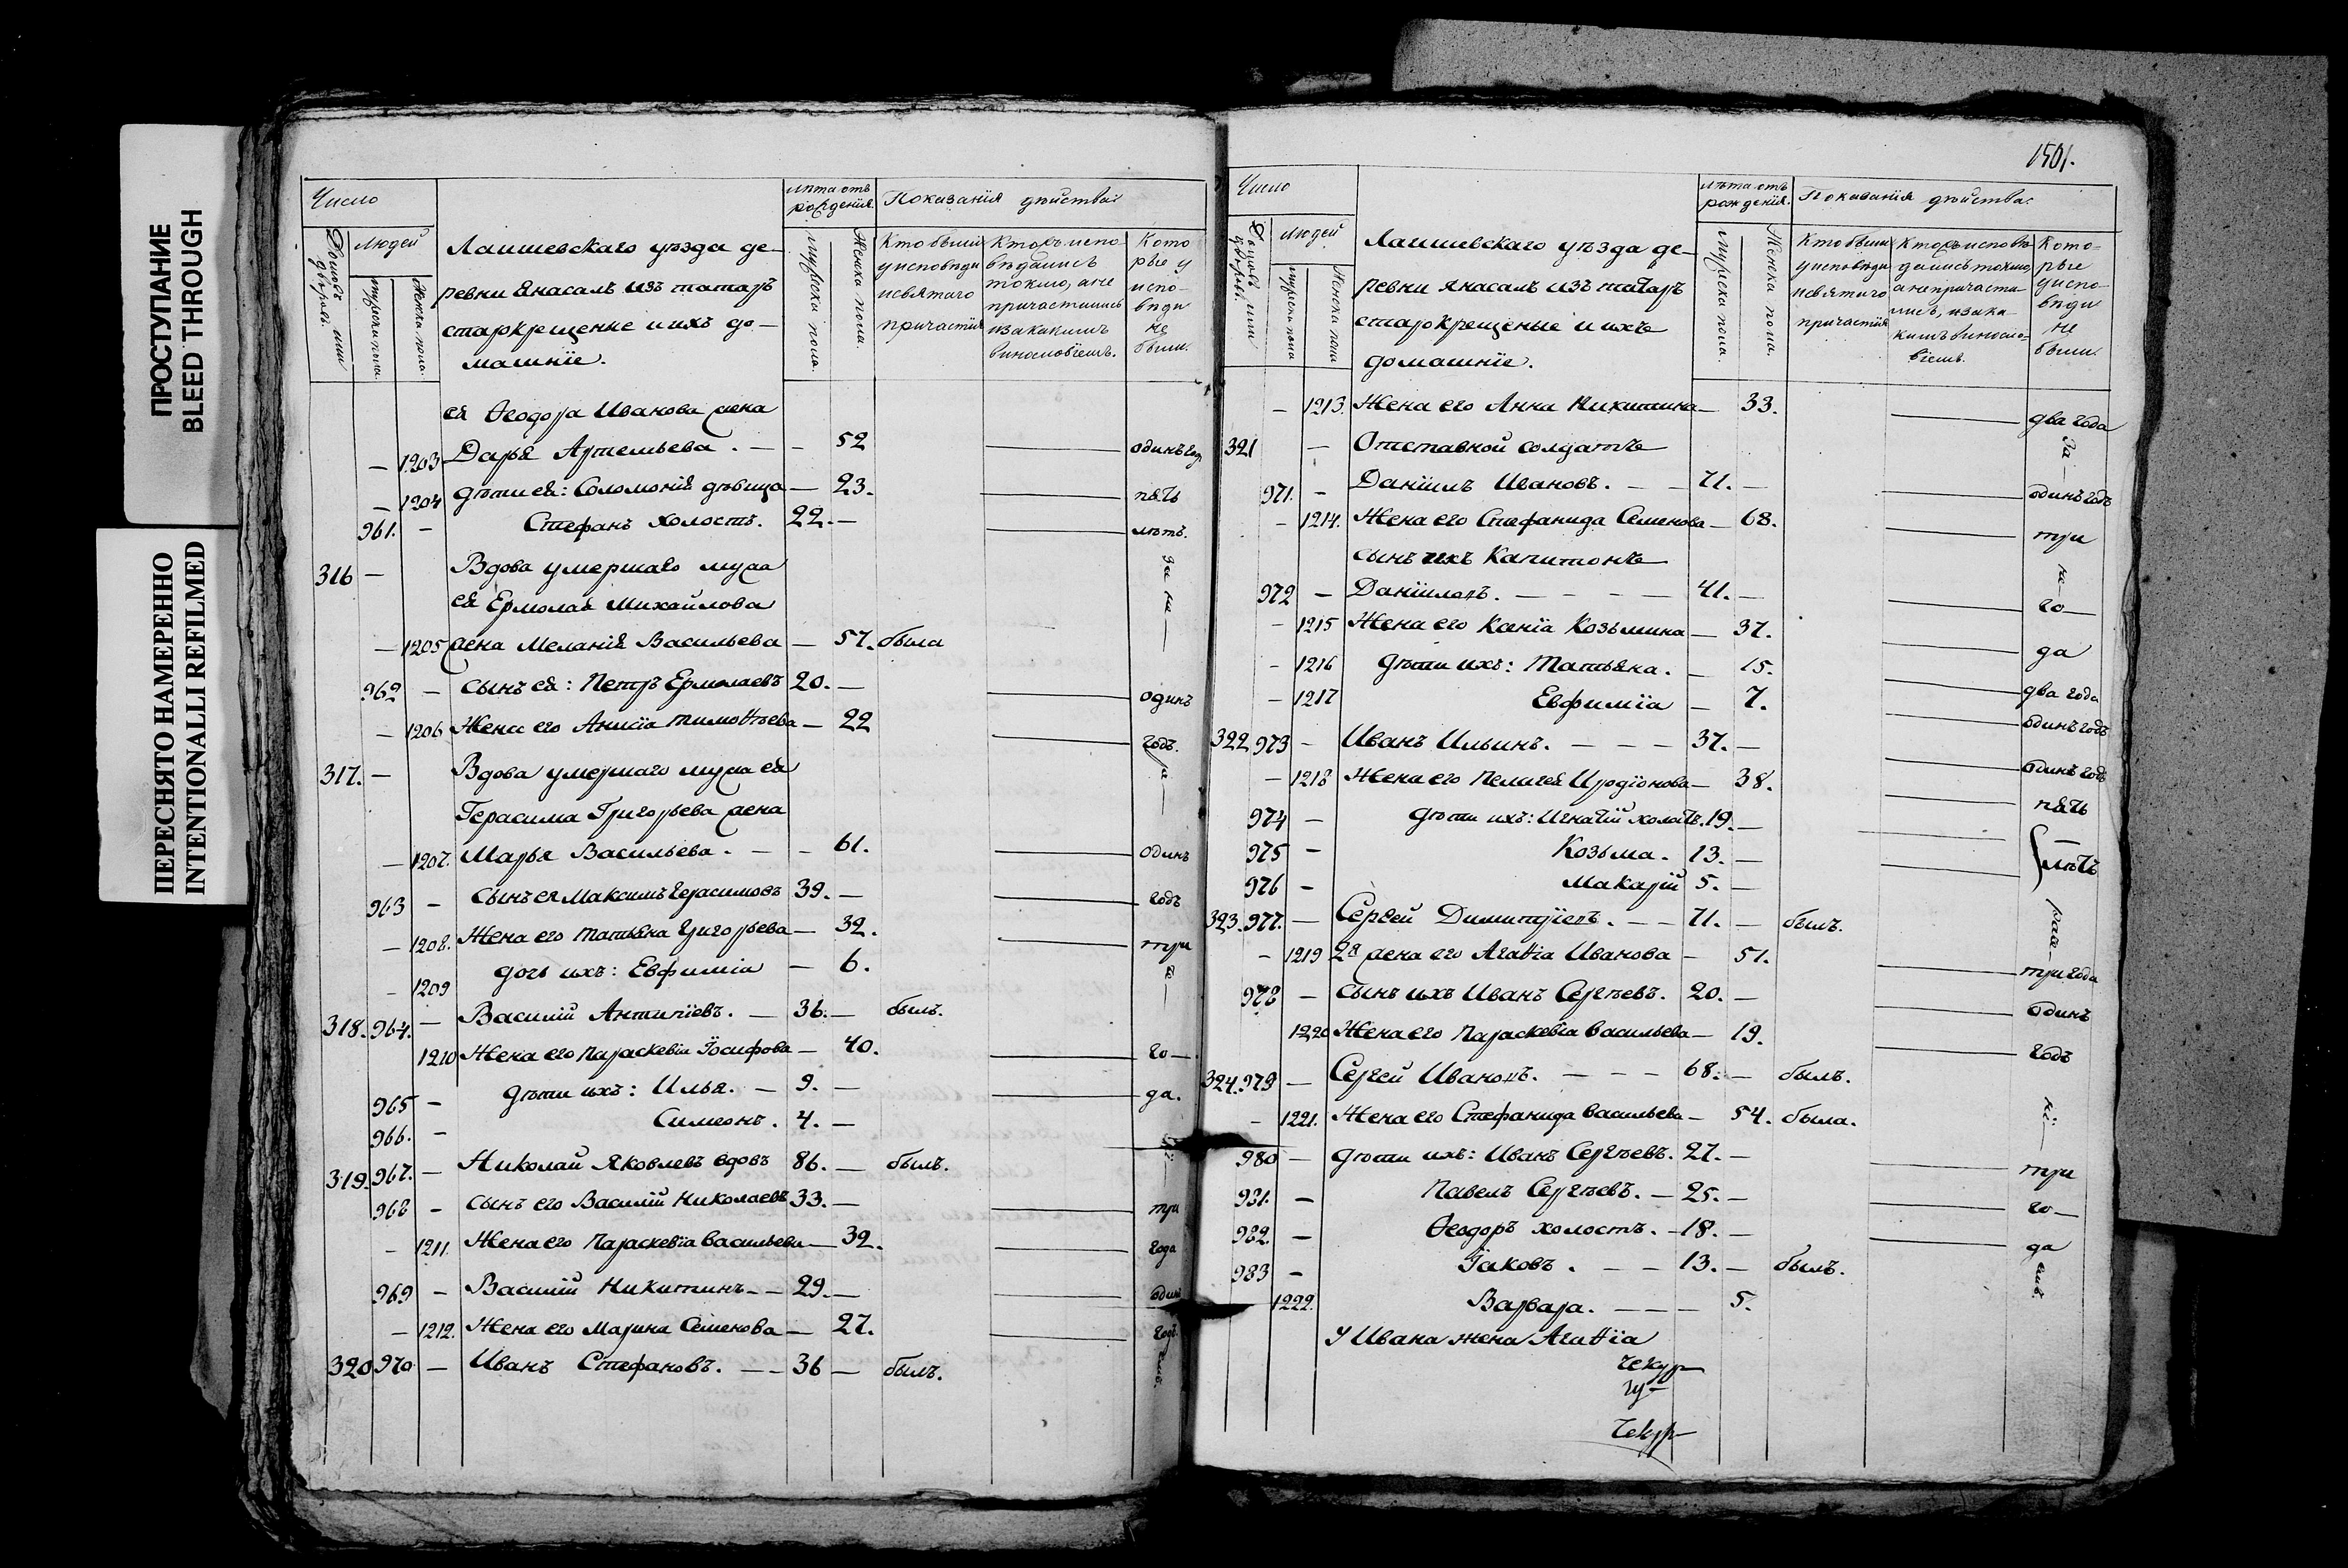 ПРОСТУПАНИЕ
BLEED THROUGH
ПЕРЕСНЯТО НАМЕРЕННО
INTENTIONALLI REFILMED
Число
лѣта отъ рожденія
Показанія дѣйства:
Домовъ или дворовъ
Людей
мужеска пола.
Женска пола.
Лаишевскаго уѣзда де-
ревни Янасалъ изъ татаръ
старкрещеные и ихъ до-
машніе.
Мужеска пола.
Женска пола.
Кто были
у исповѣди
и святаго
причастія
Кторъ испо
вѣдались
токмо, а не
причастились
и за какимъ
винословіемъ.
Кото
рые у
испо-
вѣди
не
были.
ея Ѳеодора Иванова жена
— 1203 Дарья Артемьева. — — 52 одинъ годъ
— 1204 дѣти ея: Соломонія дѣвица — 23. пять
961. — Стефанъ холостъ. 22. — лѣтъ.
316 — Вдова умершаго мужа
ея Ермолая Михайлова
за не —
— 1205 жена Меланія Васильева — 57. была
962 — сынъ ея: Петръ Ермолаевъ 20. — одинъ
— 1206 Жена его Анисія Тимоѳеева — 22 годъ.
317. — Вдова умершаго мужа ея
Герасима Григорьева жена
— 1207. Марья Васильева. — — 61. одинъ
963 — сынъ ея Максимъ Герасимовъ 39. — годъ
— 1208. Жена его Татьяна Григорьева — 32. три
— 1209 дочь ихъ: Евфимія — 6.
318. 964. — Василій Антипіевъ. — 36. — былъ.
1210 Жена его Параскевія Іосифова — 40. го —
965 — дѣти ихъ: Илья. — 9. — да.
966. — Симеонъ. 4. —
319. 967. — Николай Яковлевъ вдовъ 86. — былъ.
968 — сынъ его Василій Николаевъ 33. — три
— 1211. Жена его Параскевія Васильева — 32. года
969 — Василій Никитинъ — — 29. — одинъ
— 1212. Жена его Марина Семенова — 27. годъ.
320 970 — Иванъ Стефановъ. — — 36 — былъ.
1501.
Число
лѣта отъ рожденія.
Показанія дѣйства:
Домовъ или дворовъ.
Людей
мужеска пола
Женска пола
Лаишевскаго уѣзда де-
ревни янасалъ изъ татаръ
старокрещеные и ихъ
домашніе.
Мужеска пола.
Женска пола.
Кто были
у исповѣди
и святаго
причастія
Кторъ исповѣ
дались токмо,
а не причасти-
лись, и за ка-
кимъ виносло-
віемъ.
Кото-
рые
у испо-
вѣди
не
были.
— 1213. Жена его Анна Никитина — 33. два года
321 — Отставной солдатъ
за —
971. — Даніилъ Ивановъ. — — 71. — одинъ годъ
— 1214. Жена его Стефанида Семенова — 68. три
сынъ ихъ Капитонъ
не —
972 — Даніиловъ. — — — — 41. — го —
— 1215 Жена его Ксенія Козьмина — 37. да
— 1216 дѣти ихъ: Татьяна. — 15. два года
— 1217 Евфимія — 7. одинъ годъ
322 973 — Иванъ Ильинъ. — — — 37. — одинъ годъ
— 1218 Жена его Пелагея Иродіонова — 38. пять
974 — дѣти ихъ: Игнатій холостъ. 19. —
975 — Козьма. 13. — лѣтъ
976 — Макарій 5. —
323. 977. — Сергей Димитріевъ. — — 71. — былъ.
— 1219 2я жена его Агаѳія Иванова — 51. три года
978 — сынъ ихъ Иванъ Сергѣевъ. 20. — одинъ
1220 Жена его Параскевія Васильева — 19. годъ
324. 979 — Сергей Ивановъ. — — — 68. — былъ.
— 1221. Жена его Стефанида Васильева — 54. была.
980 — дѣти ихъ: Иванъ Сергѣевъ. 27. — три
981. — Павелъ Сергѣевъ. — 25. — го —
982. — Ѳеодоръ холостъ. — 18. — да
983 — Іаковъ. — — 13. — былъ.
1222. Варвара. — — — 5.
У Ивана жена Агаѳія